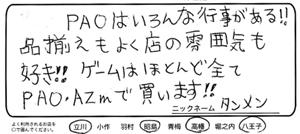 PAOはいろんな行事がある!!
品揃えもよく店の雰囲気も
好き!! ゲームはほとんど全て
PAO・AZmで買います!!
ニックネーム タンメン
よく利用されるお店を
○で囲んでください。
立川 小作 羽村 昭島 青梅 高幡 堀之内 八王子